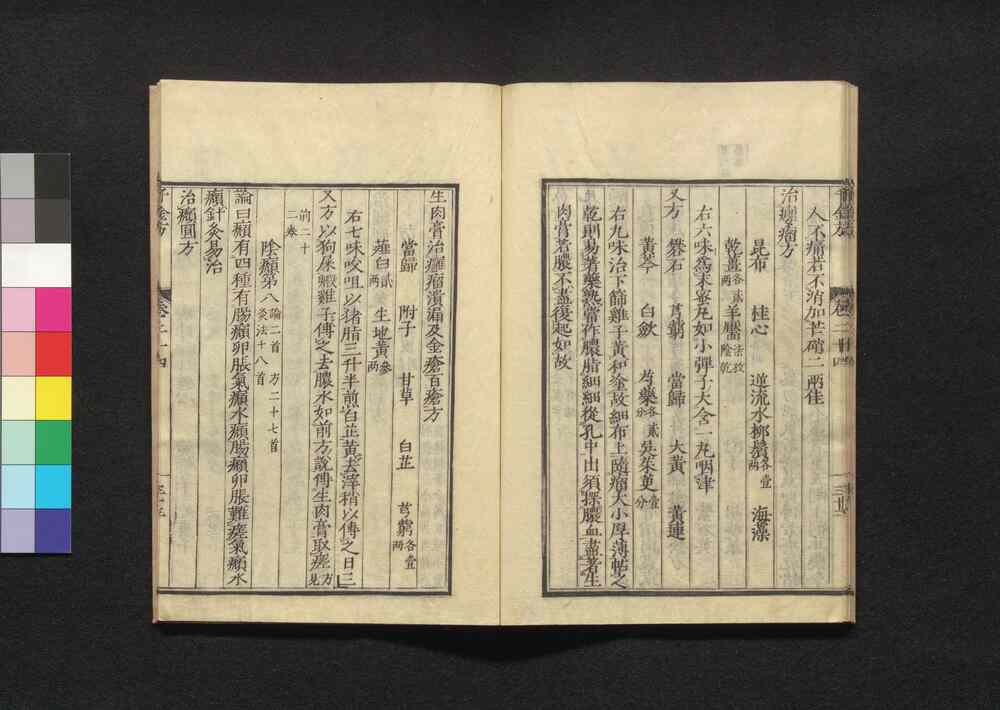 人不痛若不消加芒硝二兩佳
治癭瘤方
昆布　桂心　逆流水柳鬚各壹兩　海藻
乾薑各貳兩　羊靨法炙陰乾
右六味爲末蜜丸如小彈子大含一丸咽津
又方　礬石　芎藭　當歸　大黃　黃連
黃芩　白歛　芍藥各貳分　吳茱萸壹分
右九味治下篩雞子黃和塗故細布上隨瘤大小厚薄帖之
乾則易著藥熟當作膿脂細細從孔中出須探膿血盡著生
肉膏若膿不盡復起如故
生肉膏治癰瘤潰漏及金瘡百瘡方
當歸　附子　甘草　白芷　芎藭各壹兩
薤白貳兩　生地黃參兩
右七味㕮咀以猪脂三升半煎白芷黃去滓稍以傅之日三
又方以狗屎毈雞子傅之去膿水如前方說傅生肉膏取瘥方見
前二十二卷
陰㿗第八論二首　方二十七首灸法十八首
論曰㿗有四種有腸㿗卵脹氣㿗水㿗腸㿗卵脹難瘥氣㿗水
㿗針灸易治
治㿗圓方